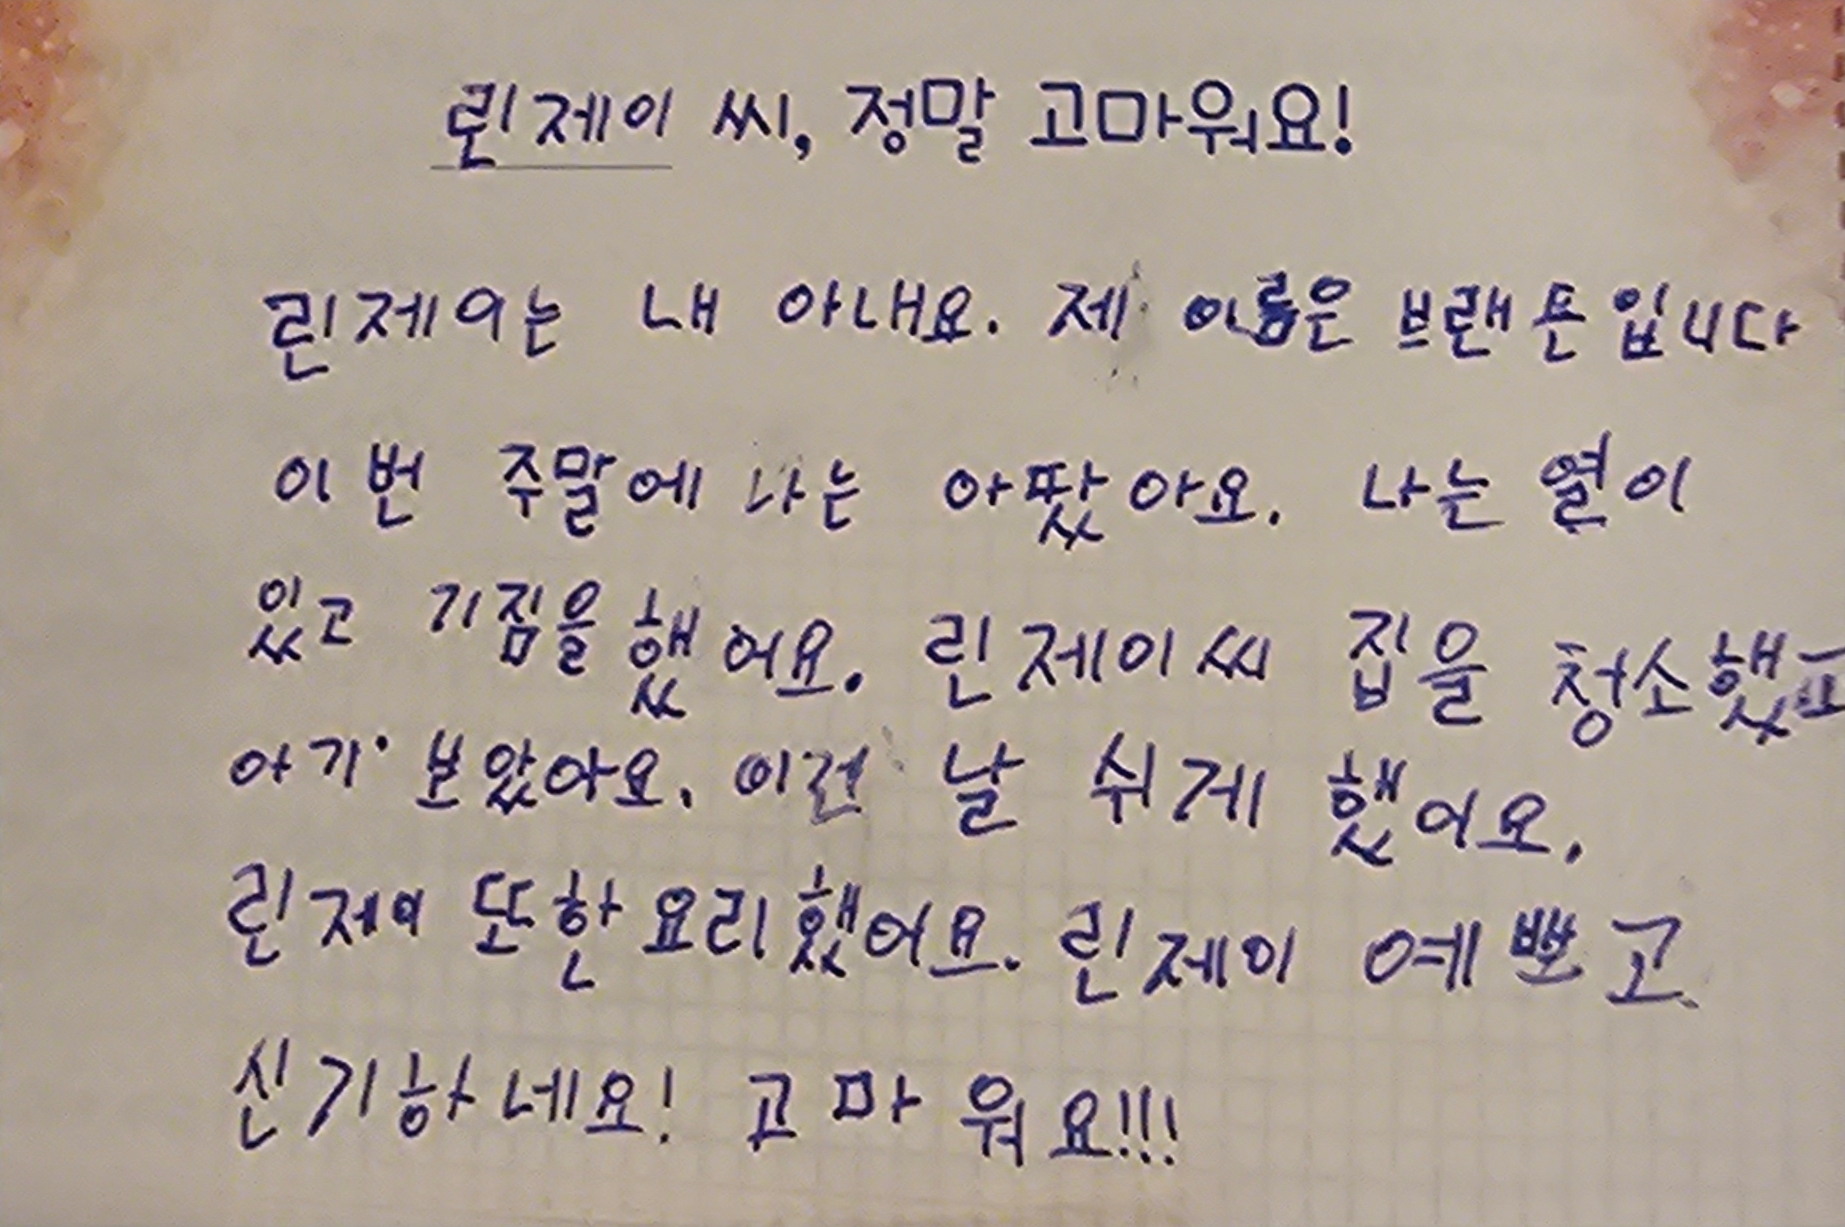 린제이 씨, 정말 고마워요!
린제이는 내 아내요. 제 이름은 브랜든입니다
이번 주말에 나는 아팠아요. 나는 열이
있고 기짐을 했어요. 린제이씨 집을 청소했고
아기 보았아요. 이런 날 쉬게 했어요.
린제이 또한 요리했어요. 린제이 예뽀고
신기하네요! 고마워요!!!